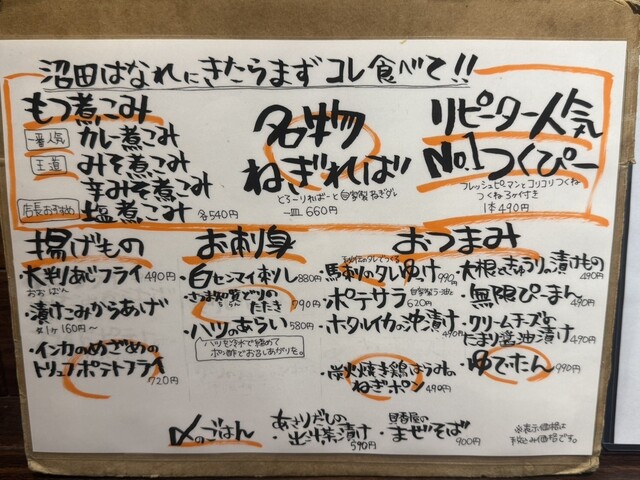 沼田はなれにきたらまずコレ食べて!!
もつ煮こみ
一番人気 カレー煮こみ
王道 みそ煮こみ
辛みそ煮こみ
店長おすすめ 塩煮こみ 各540円
名物
ねぎればー
とろーりればーと自家製ねぎダレ
一皿 660円
リピーター人気
No.1つくぴー
フレッシュピーマンとコリコリつくね
つくね3ヶ付き
1本490円
揚げもの
・大判あじフライ 490円
おおばん
・漬けこみからあげ
1ヶ160円〜
・インカのめざめの
トリュフポテトフライ
720円
お刺身
・白センマイ刺し 880円
たたき 790円
・ハツのあらい 580円
ハツを冷水で締めて
ポン酢でお召しあがりを。
おつまみ
・馬刺しのタレゆけ 990円
・ポテサラ 自家製ラー油と 620円
・ホタルイカの沖漬け 490円
・炭火焼き鶏はらみの
ねぎポン 490円
・大根ときゅうりの漬けもの 490円
・無限ぴーまん 490円
・クリームチーズの
たまり醤油漬け 490円
・ゆでたん 990円
〆のごはん
・あさりだしの
出汁茶漬け 590円
・まぜそば 900円
※表示価格は
税込み価格です。